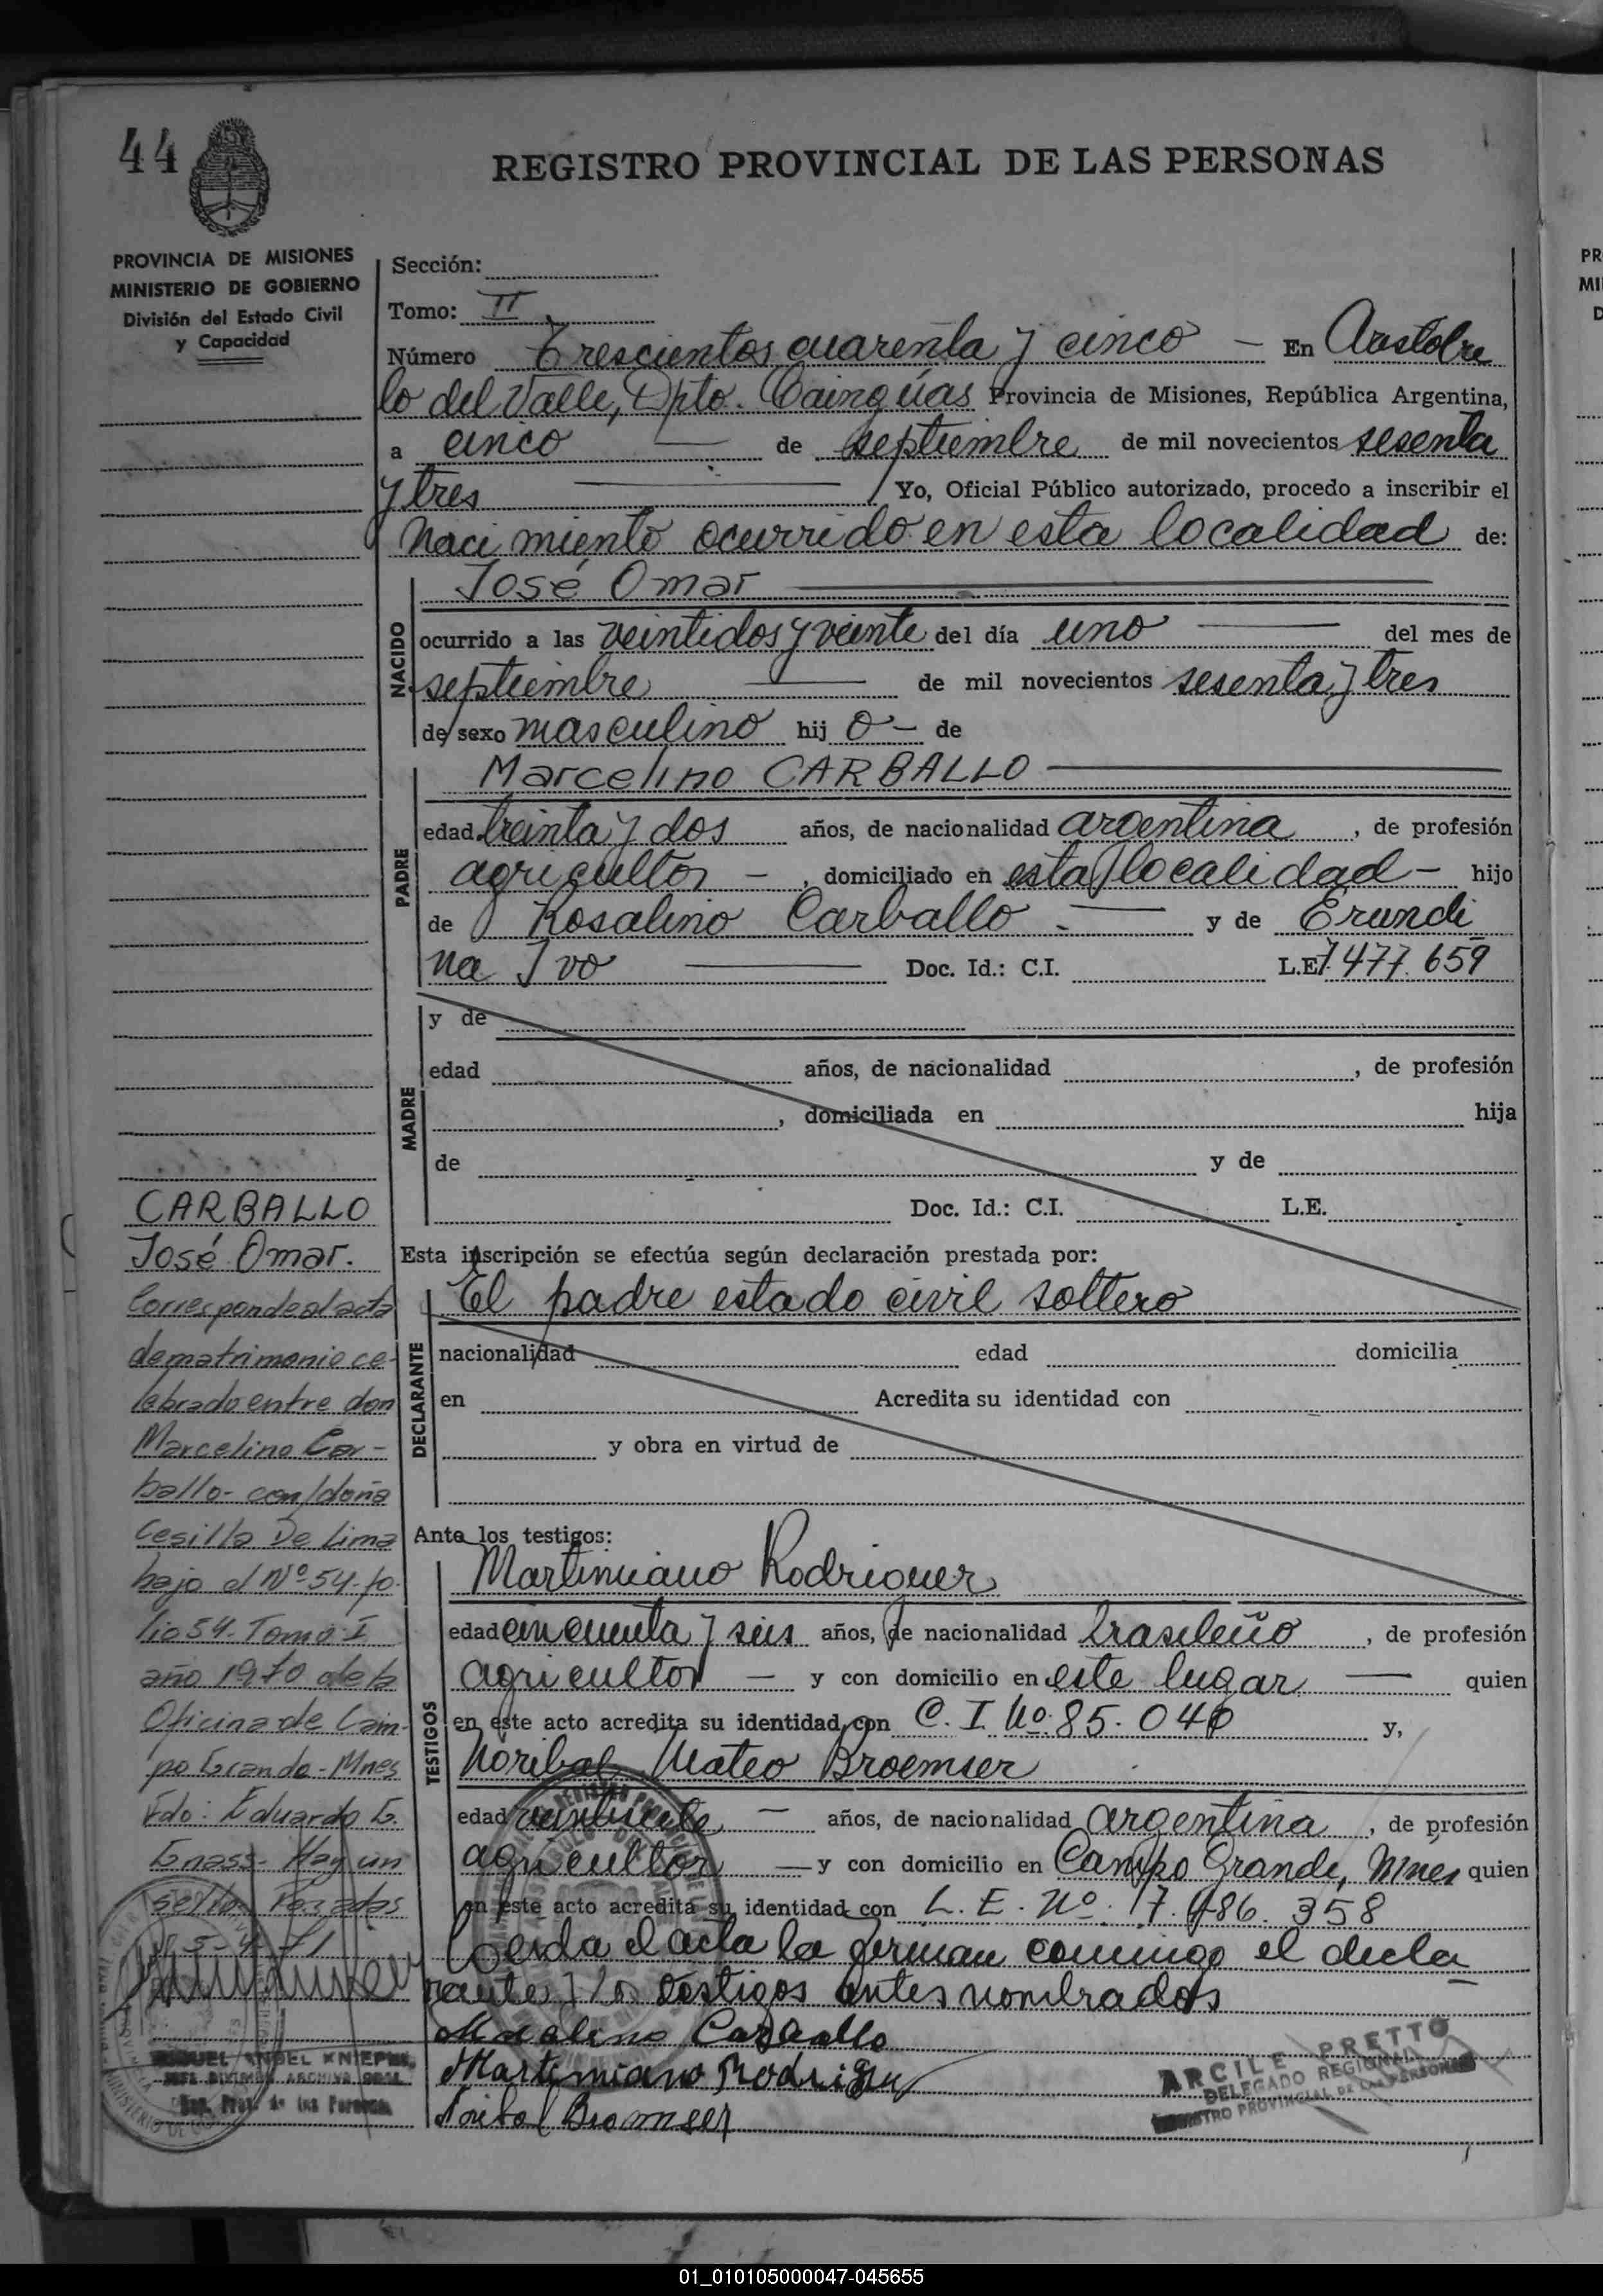 44
REGISTRO PROVINCIAL DE LAS PERSONAS
PROVINCIA DE MISIONES
MINISTERIO DE GOBIERNO
División del Estado Civil
y Capacidad
Sección:
Tomo: II
Número Trescientos cuarenta y cinco — En Aristobre
lo del Valle, Dpto. Cainguas Provincia de Misiones, República Argentina,
a cinco — de septiembre de mil novecientos sesenta
y tres — Yo, Oficial Público autorizado, procedo a inscribir el
Nacimiento ocurrido en esta localidad de:
NACIDO
José Omar
ocurrido a las veintidos y veinte del día uno — del mes de
septiembre — de mil novecientos sesenta y tres
de sexo masculino hij o — de
PADRE
Marcelino CARBALLO —
edad treinta y dos años, de nacionalidad argentina, de profesión
agricultor —, domiciliado en esta localidad — hijo
de Rosalino Carballo — y de Erundi
na Ivo — Doc. Id.: C.I. L.E. 7.477.659
MADRE
y de
edad años, de nacionalidad , de profesión
, domiciliada en hija
de y de
Doc. Id.: C.I. L.E.
Esta inscripción se efectúa según declaración prestada por:
DECLARANTE
El padre estado civil soltero
nacionalidad edad domicilia
en Acredita su identidad con
y obra en virtud de
Ante los testigos:
TESTIGOS
Martiniano Rodriguez
edad cincuenta y seis años, de nacionalidad brasileño, de profesión
agricultor — y con domicilio en este lugar — quien
en este acto acredita su identidad con C. I. No. 85.040 y,
Noribal Mateo Broemser
edad — años, de nacionalidad argentina, de profesión
agricultor — y con domicilio en Campo Grande, Mnes quien
en este acto acredita su identidad con L. E. Nº. 7.486.358
Leida el acta la firman conmigo el decla
rante y los testigos antes nombrados
Marcelino Carballo
Martiniano Rodrigue
Noribal Broemser
CARBALLO
José Omar.
Corresponde al acta
de matrimonio ce-
lebrado entre don
Marcelino Car-
ballo- con/doña
Cesilla De Lima
bajo el Nº 54- fo-
lio 54- Tomo I
año 1970 de la
Oficina de Cam-
po Grande- Mnes
Fdo: Eduardo G.
Gnass- Hay un
sello. Posadas
5-4-71
MIGUEL ANGEL KNIEPER
JEFE DIVISION ARCHIVO GRAL.
Reg. Prov. de las Personas
ARCILE PRETTO
DELEGADO REGIONAL
REGISTRO PROVINCIAL DE LAS PERSONAS
01_010105000047-045655